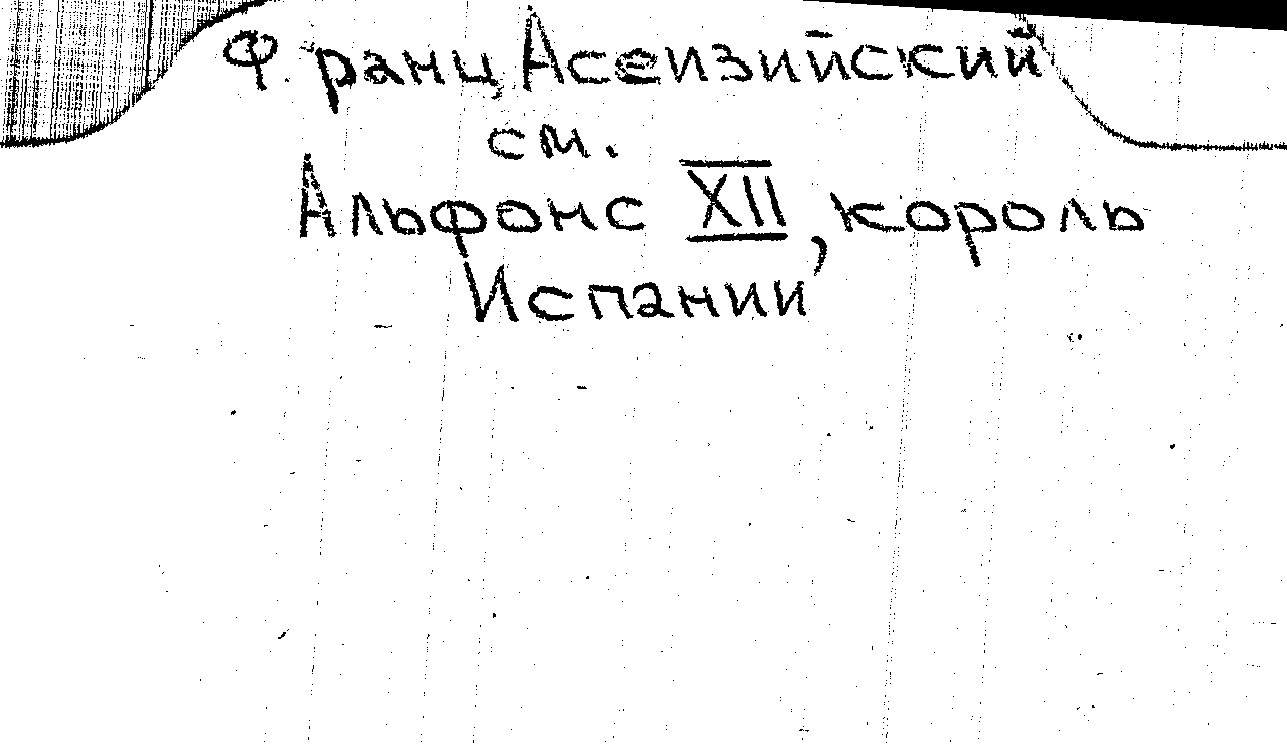 Франц Асеизийский
см.
Альфонс XII, король
Испании